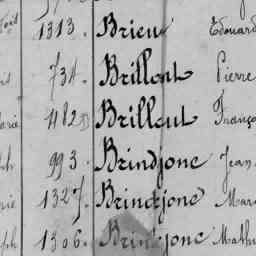 1313. Brieu Edouard
734. Brillant Pierre
482 Brillaut Franço
993. Brindjonc Jean
1327. Brindjonc Mar
1306. Brindjonc Mathu